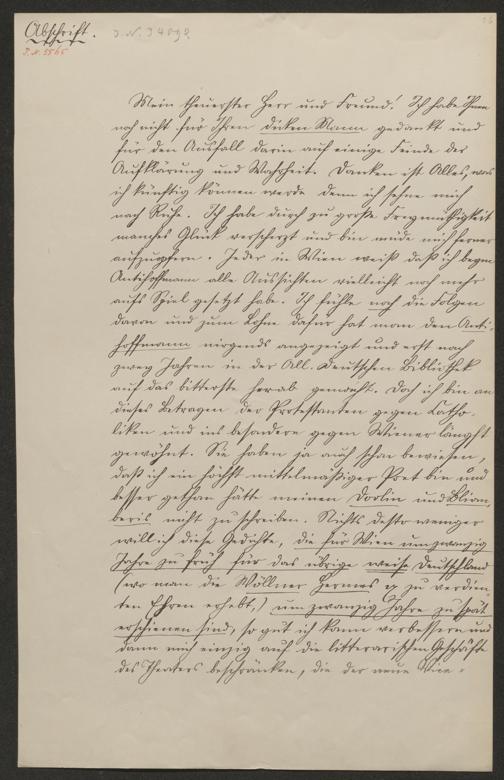 Abschrift.
J. N. 34092
J. N. 5565
Mein theuerster Herr und Freund! Ich habe Ihnen
noch nicht für Ihren dicken Mann gedankt und
für den Ausfall darin auf einige Feinde der
Aufklärung und Wahrheit. Danken ist Alles, was
ich künftig können werde denn ich sehne mich
nach Ruhe. Ich habe durch zu große Freymüthigkeit
manches Glück verscherzt und bin müde mich ferner
aufzuopfern. Jeder in Wien weiß daß ich beym
Antihoffmann alle Aussichten vielleicht noch mehr
aufs Spiel gesetzt habe. Ich fühle noch die Folgen
davon und zum Lohne dafür hat man den Anti-
hoffmann nirgends angezeigt und erst nach
zwey Jahren in der All. Deutschen Bibliothek
auf das bitterste herab gemacht. Doch ich bin an
dieses Betragen der Protestanten gegen Katho-
liken und ins besondere gegen Wiener längst
gewöhnt. Sie haben ja auch schon bewiesen,
daß ich ein höchst mittelmäßiger Poet bin und
besser gethan hätte meinen Doolin und Bliom-
beris nicht zu schreiben. Nichts desto weniger
will ich diese Gedichte, die für Wien um zwanzig
Jahre zu früh für das übrige weise Deutschland
(wo man die Wöllner Hermes zu verdien-
ten Ehren erhebt,) um zwanzig Jahre zu spät
erschienen sind, so gut ich kann verbessern und
dann mich einzig auf die litterarischen Geschäfte
des Theaters beschränken, die der neue Vice-